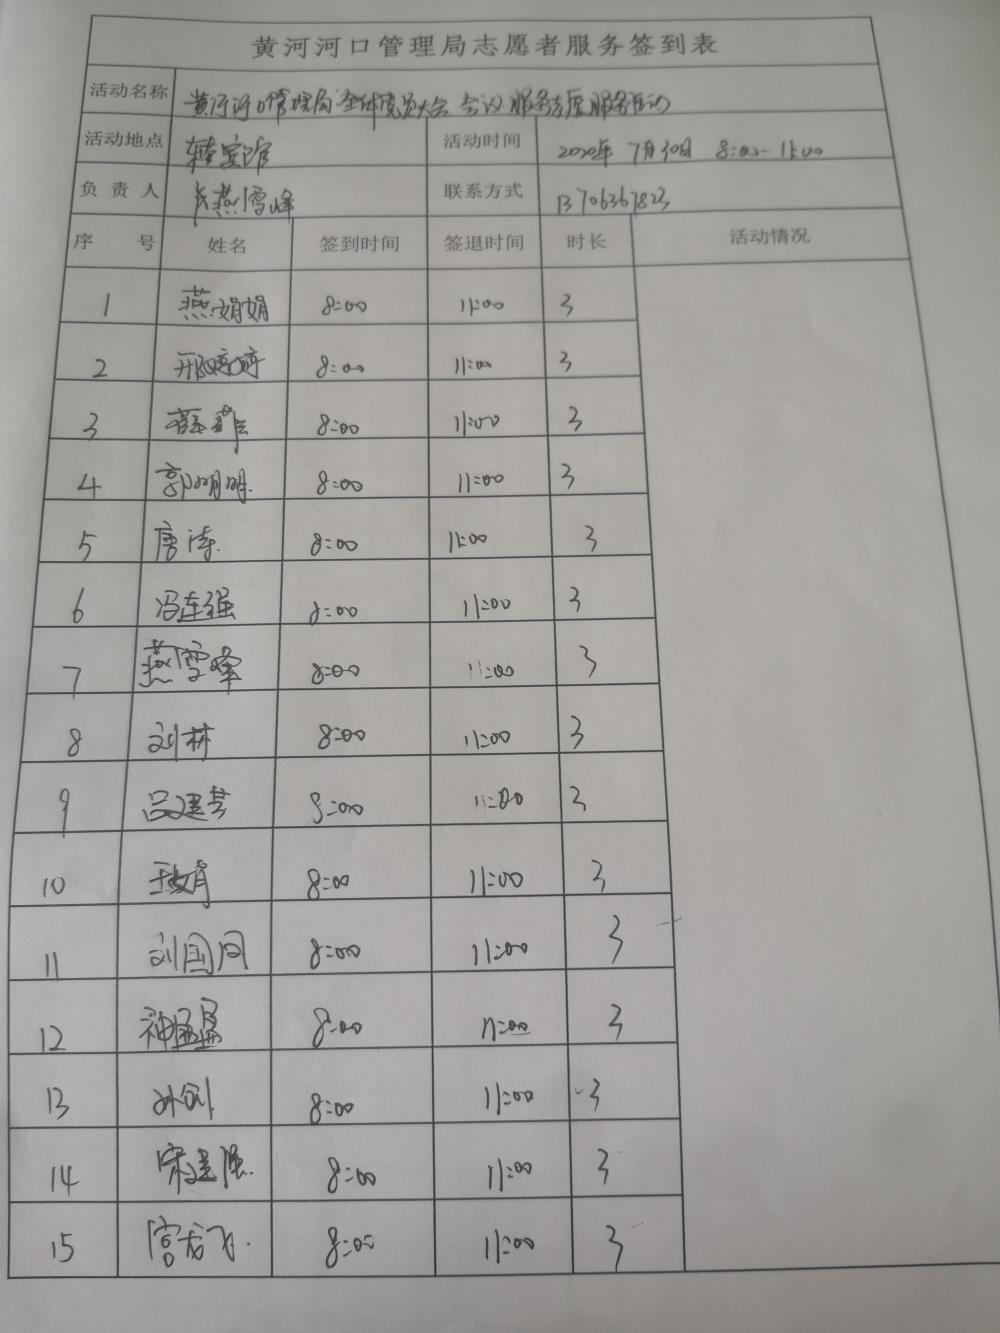 黄河河口管理局志愿者服务签到表
活动名称 黄河河口管理局全体党员大会会议服务志愿服务活动
活动地点 宾馆 活动时间 2020年7月30日 8:00-11:00
负责人 燕雪峰 联系方式 13706367823
序号 姓名 签到时间 签退时间 时长 活动情况
1 燕娟娟 8:00 11:00 3
2 邢婷婷 8:00 11:00 3
3 8:00 11:00 3
4 郭明明 8:00 11:00 3
5 唐涛 8:00 11:00 3
6 冯连强 8:00 11:00 3
7 燕雪峰 8:00 11:00 3
8 刘林 8:00 11:00 3
9 吕建芳 8:00 11:00 3
10 王娟 8:00 11:00 3
11 刘国同 8:00 11:00 3
12 神 8:00 11:00 3
13 孙剑 8:00 11:00 3
14 宋建强 8:00 11:00 3
15 宫龙飞 8:00 11:00 3